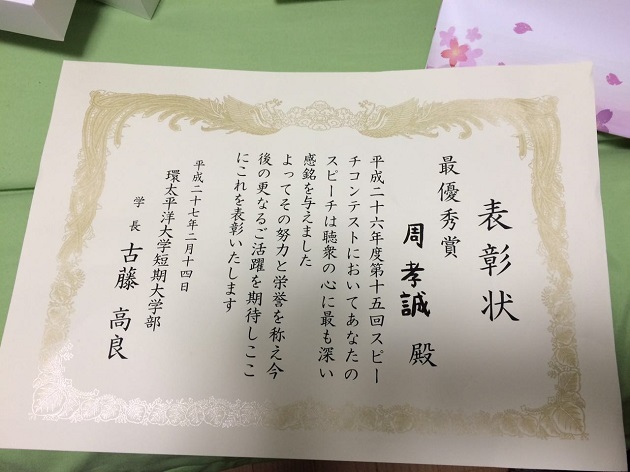 表彰状
最優秀賞
周孝誠 殿
平成二十六年度第十五回スピー
チコンテストにおいてあなたの
スピーチは聴衆の心に最も深い
感銘を与えました
よってその努力と栄誉を称え今
後の更なるご活躍を期待しここ
にこれを表彰いたします
平成二十七年二月十四日
環太平洋大学短期大学部
学長 古藤高良